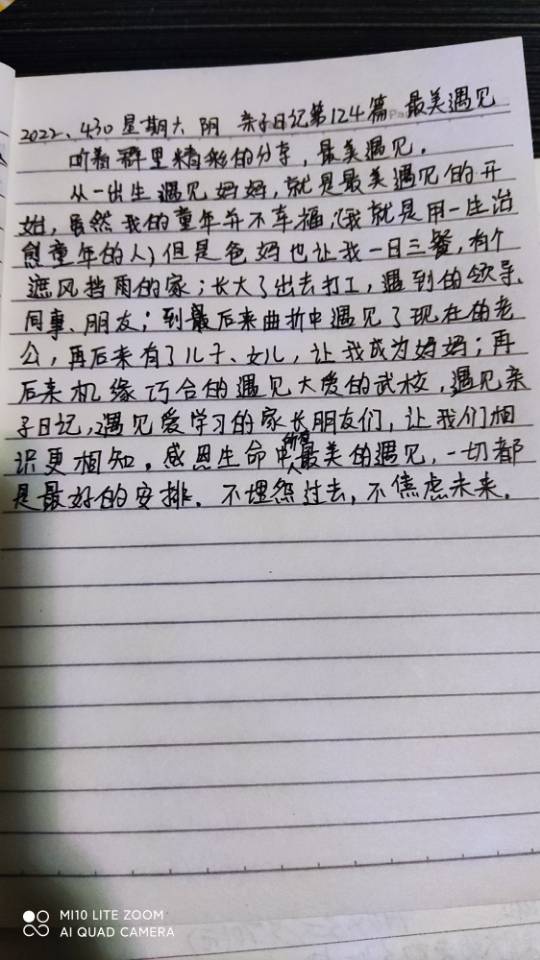 2022、430 星期六 阴 亲子日记第124篇 最美遇见
听着群里精彩的分享，最美遇见。
从一出生遇见妈妈，就是最美遇见的开
始，虽然我的童年并不幸福，(我就是用一生治
愈童年的人)但是爸妈也让我一日三餐，有个
遮风挡雨的家；长大了出去打工，遇到的领导、
同事、朋友；到最后来曲折中遇见了现在的老
公，再后来有了儿子、女儿，让我成为妈妈；再
后来机缘巧合的遇见大爱的武校，遇见亲
子日记，遇见爱学习的家长朋友们，让我们相
识更相知。感恩生命中所有人最美的遇见，一切都
是最好的安排。不埋怨过去，不焦虑未来。
MI10 LITE ZOOM
AI QUAD CAMERA